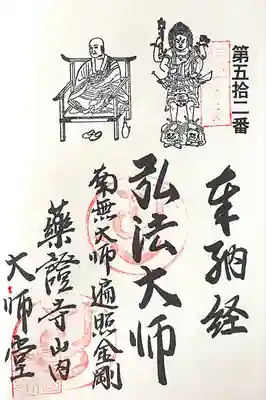 第五拾二番
奉納経
弘法大师
南無大师遍照金剛
薬證寺山内
大师堂